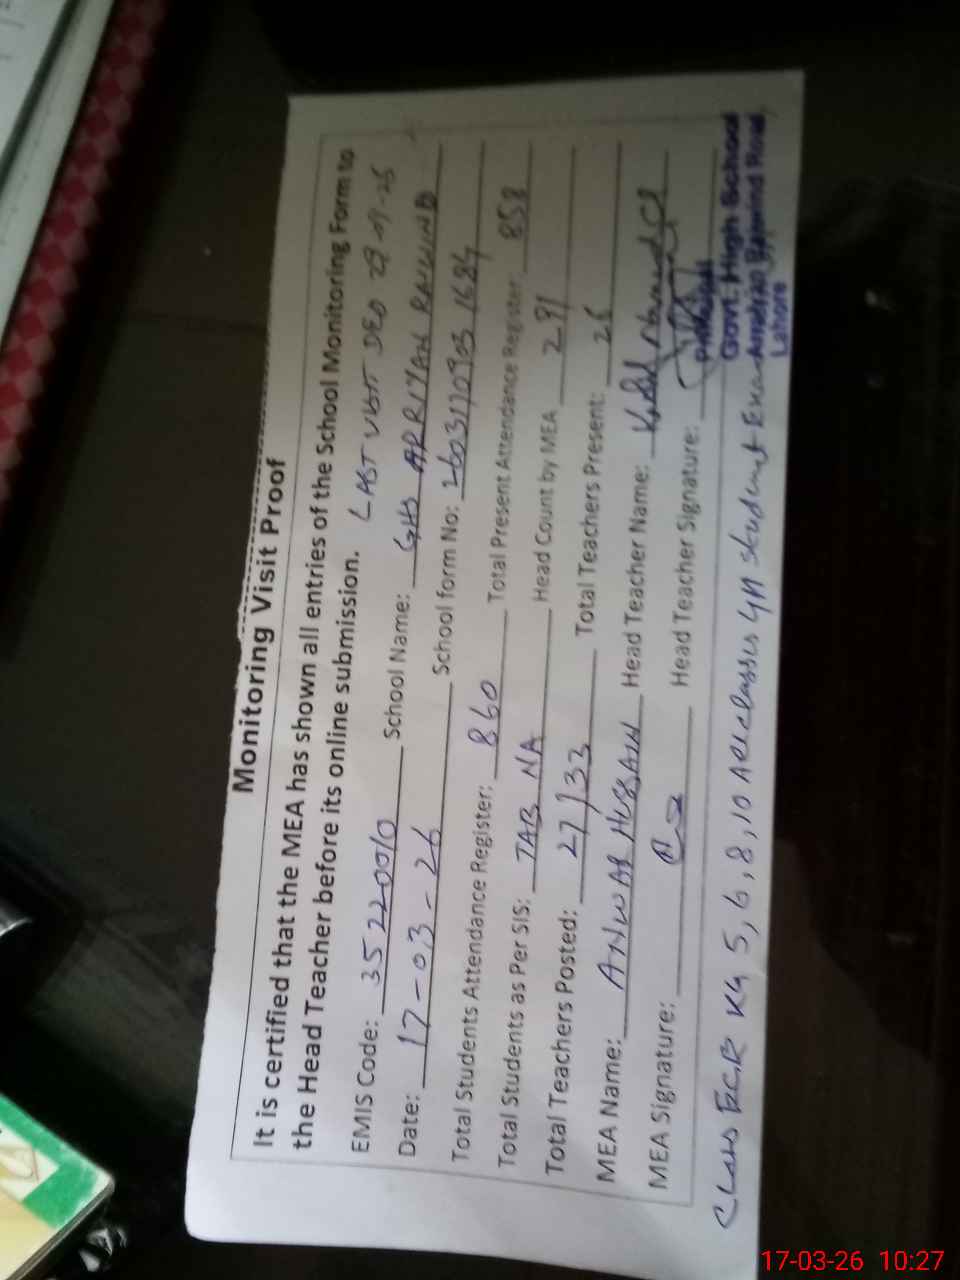 Monitoring Visit Proof
It is certified that the MEA has shown all entries of the School Monitoring Form to
the Head Teacher before its online submission. LAST VISIT DEO
EMIS Code: 35220010 School Name: GHS ARRIYAN RAIWIND
Date: 17-03-26 School form No: 26031709031684
Total Students Attendance Register: 860 Total Present Attendance Register: 858
Total Students as Per SIS: TAB NA Head Count by MEA 291
Total Teachers Posted: 27/33 Total Teachers Present: 26
MEA Name: ANWAR HUSSAIN Head Teacher Name:
MEA Signature: Head Teacher Signature:
Govt. High School
Raiwind Road
Lahore
Class E.C.R KG 5, 6, 8, 10 student
17-03-26 10:27